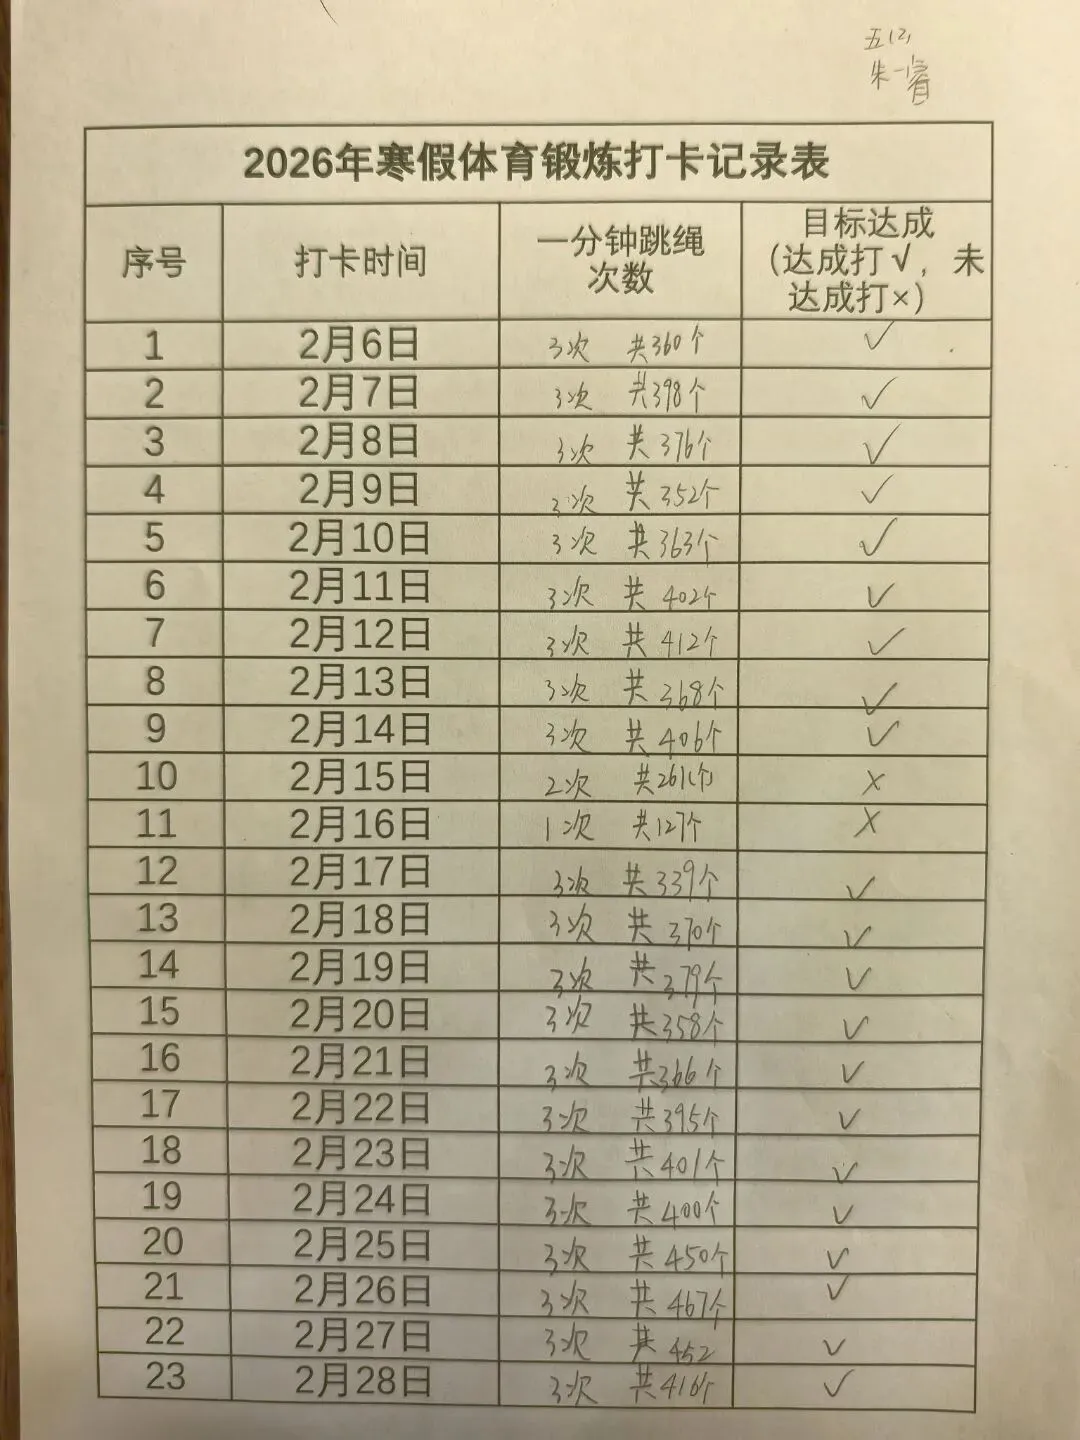 五(2)
朱一睿
2026年寒假体育锻炼打卡记录表
序号 打卡时间 一分钟跳绳次数 目标达成(达成打√,未达成打×)
1 2月6日 3次 共360个 ✓
2 2月7日 3次 共398个 ✓
3 2月8日 3次 共376个 ✓
4 2月9日 3次 共352个 ✓
5 2月10日 3次 共363个 ✓
6 2月11日 3次 共402个 ✓
7 2月12日 3次 共412个 ✓
8 2月13日 3次 共368个 ✓
9 2月14日 3次 共406个 ✓
10 2月15日 2次 共261个 ×
11 2月16日 1次 共127个 ×
12 2月17日 3次 共339个 ✓
13 2月18日 3次 共370个 ✓
14 2月19日 3次 共379个 ✓
15 2月20日 3次 共358个 ✓
16 2月21日 3次 共366个 ✓
17 2月22日 3次 共395个 ✓
18 2月23日 3次 共401个 ✓
19 2月24日 3次 共400个 ✓
20 2月25日 3次 共450个 ✓
21 2月26日 3次 共467个 ✓
22 2月27日 3次 共452 ✓
23 2月28日 3次 共416个 ✓